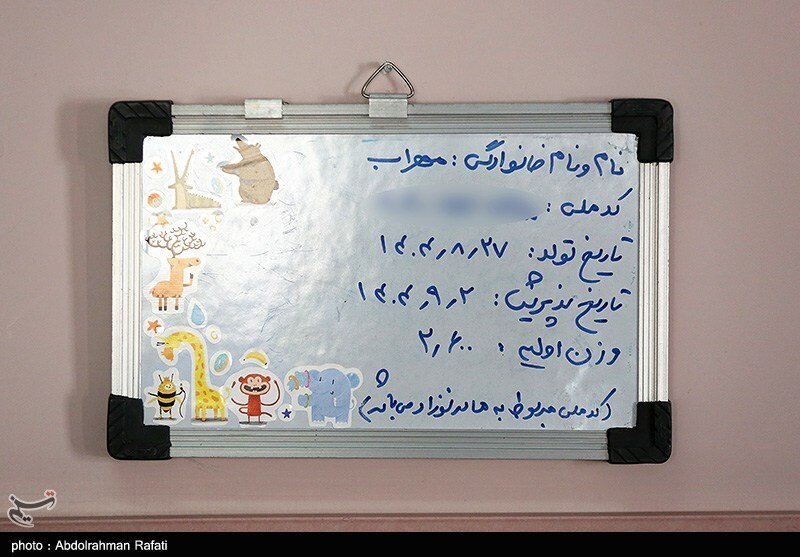 نام و نام خانوادگی : مهراب
کد ملی :
تاریخ تولد : ۱۴۰۴٫۸٫۲۷
تاریخ پذیرش : ۱۴۰۴٫۹٫۲
وزن اولیه : ۲٫۶۰۰
(کد ملی مربوط به مادر نوزاد می باشد)
تسنیم
photo : Abdolrahman Rafati